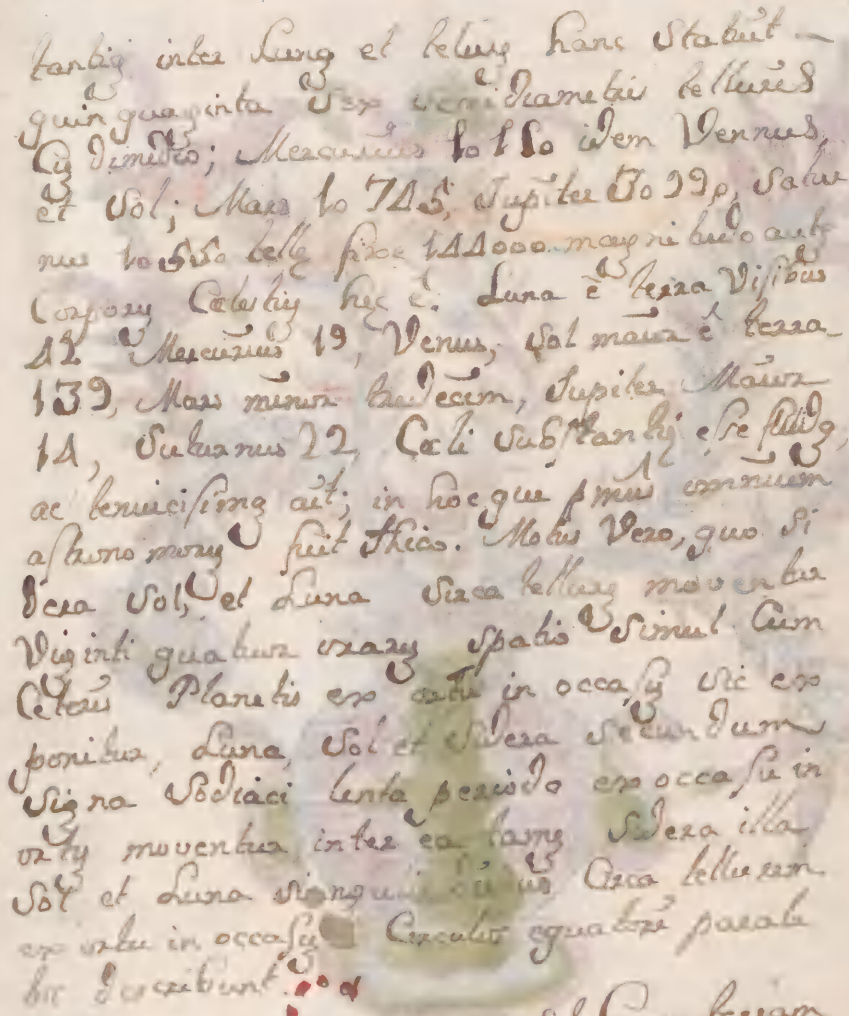 tantiā inter Lunā et tellurē hanc Statuūt —
quinquaginta Sex semidiametris tellures
Cū dimidio; Mercurius 10110 idem Vennus,
et Sol; Mars 10745, Jupiter 30990, Satur
nus 10550 telle fixe 144000 magnitudo autē
Corporū Cœlestiū hec ē. Luna ē terra Visibus
42 Mercurius 19, Venus, Sol maiur ē terra
139, Mars minur tredecim, Jupiter Maiur
14, Saturnus 22, Cœli Substantiā esse fluidā,
ac tenuicisimā aiūt; in hoc qui pmus omnium
astronomorū fuit thico. Motus Vero, quo Si
dera Sol, et Luna Sirca tellurē moventur
Viginti quatuor orarū spatio Simul Cum
Ceteris Planetis ex ortu in occasū sic ex
ponitur, Luna, Sol et Sidera Secundum
Signa Sodiaci lenta periodo ex occasu in
ortū moventur, inter ea tamē Sidera illa
Sol et Luna Circa tellurem
ex ortu in occasū Circulos equatori parale
los describunt.